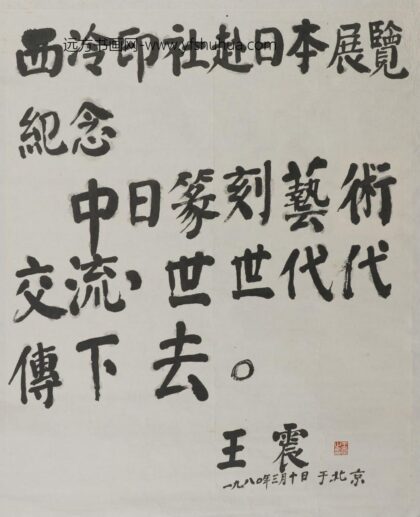 西泠印社赴日本展覽
紀念
中日篆刻藝術
交流，世世代代
傳下去。
王震
一九八〇年三月十日 于北京
远方书画网-www.yfshuhua.com